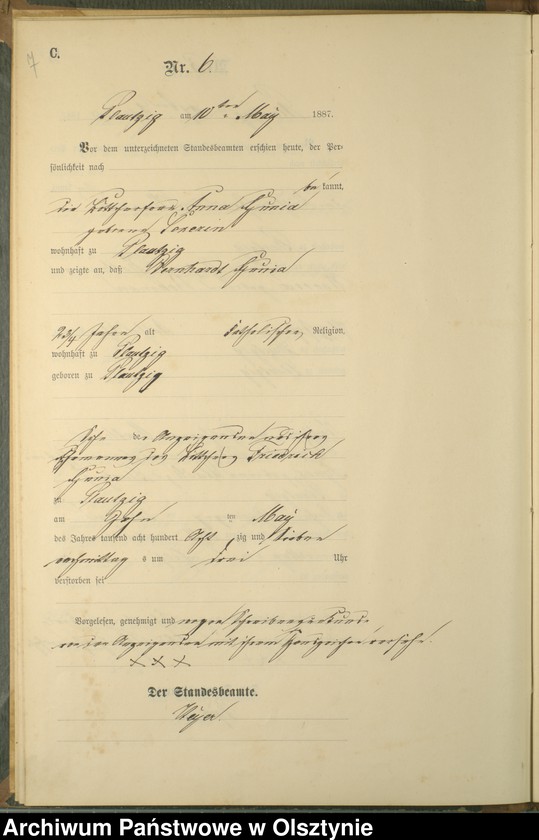 7
C.
Nr. 6.
Plautzig am 10ten May 1887.
Vor dem unterzeichneten Standesbeamten erschien heute, der Per-
sönlichkeit nach
be kannt,
die Anna Gunia
geborene
wohnhaft zu Plautzig
und zeigte an, daß Bernhardt Gunia
2 3/4 Jahre alt katholischer Religion,
wohnhaft zu Plautzig
geboren zu Plautzig
Sohn der Anzeigenden und ihres
Ehemannes des Friedrich
Gunia
zu Plautzig
am Zehn ten May
des Jahres tausend acht hundert Acht zig und Sieben
nachmittag s um drei Uhr
verstorben sei
Vorgelesen, genehmigt und wegen Schreibensunkunde
von der Anzeigenden mit ihrem Handzeichen versehen.
XXX
Der Standesbeamte.
Archiwum Państwowe w Olsztynie